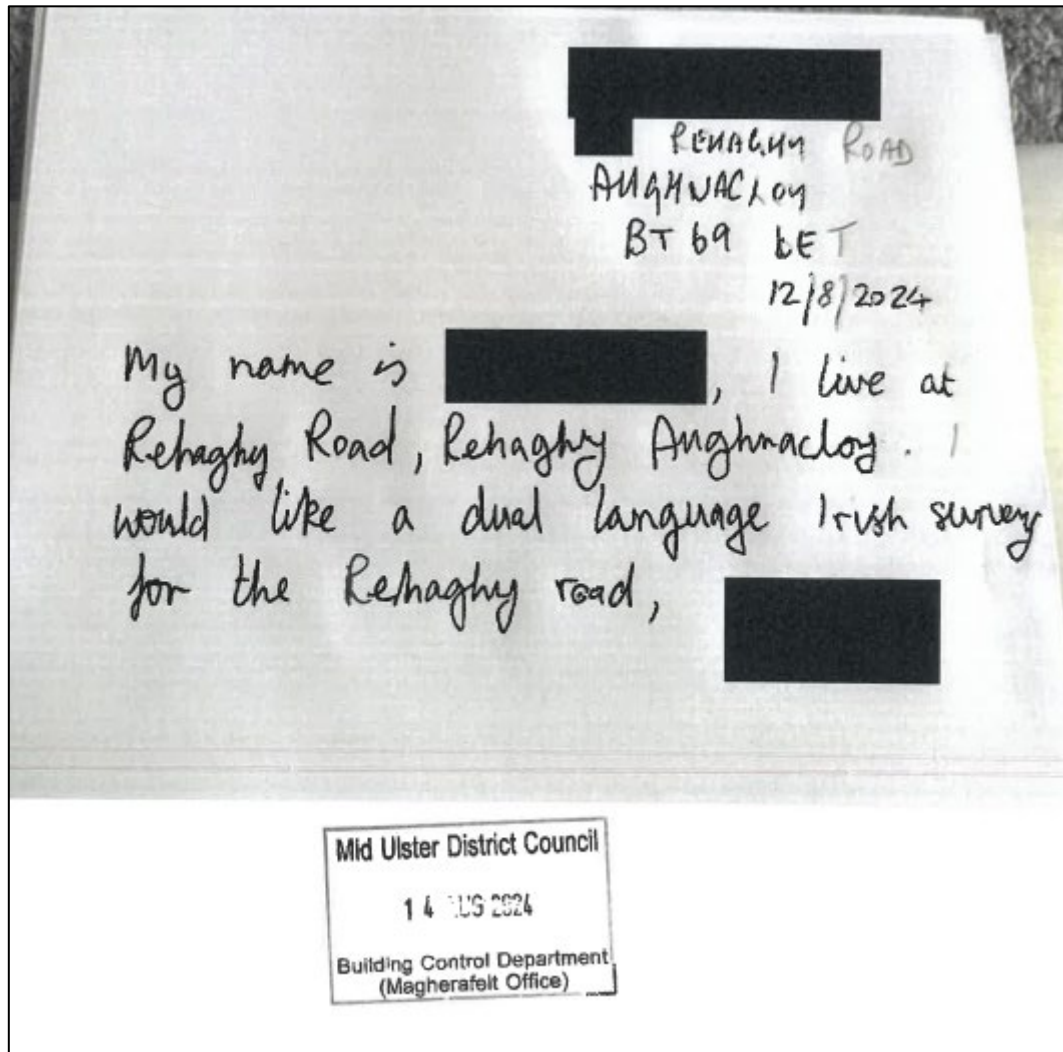 REHAGHY ROAD
AUGHNACLOY
BT 69 6ET
12/8/2024
My name is , I live at
Rehaghy Road, Rehaghy Aughnacloy. I
would like a dual language Irish survey
for the Rehaghy road,
Mid Ulster District Council
14 AUG 2024
Building Control Department
(Magherafelt Office)